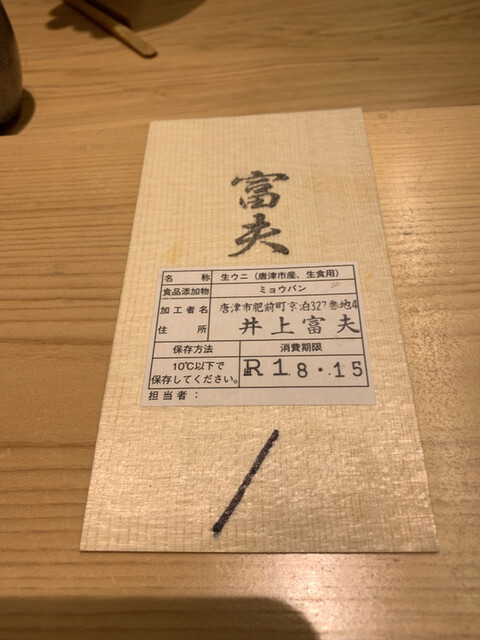 富夫
名　称 生ウニ（唐津市産、生食用）
食品添加物 ミョウバン
加工者名 唐津市肥前町京泊327番地4
住　所 井上富夫
保存方法 消費期限
10℃以下で
保存してください。 R18・15
担当者：